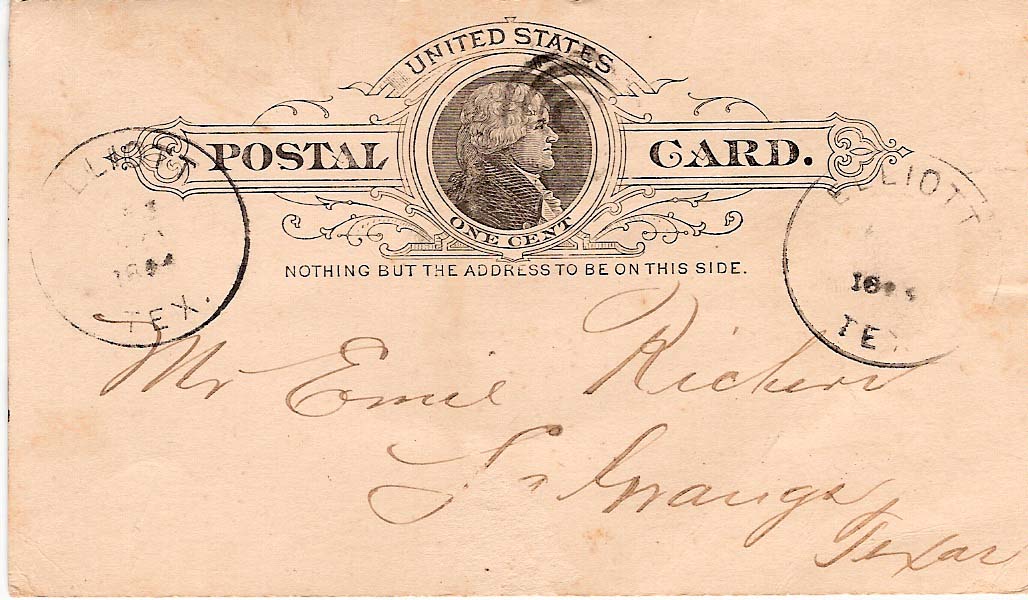 UNITED STATES
POSTAL CARD.
ONE CENT
NOTHING BUT THE ADDRESS TO BE ON THIS SIDE.
ELLIOTT
TEX.
ELLIOTT
TEX
Mr Emil Richers
La Grange
Texas